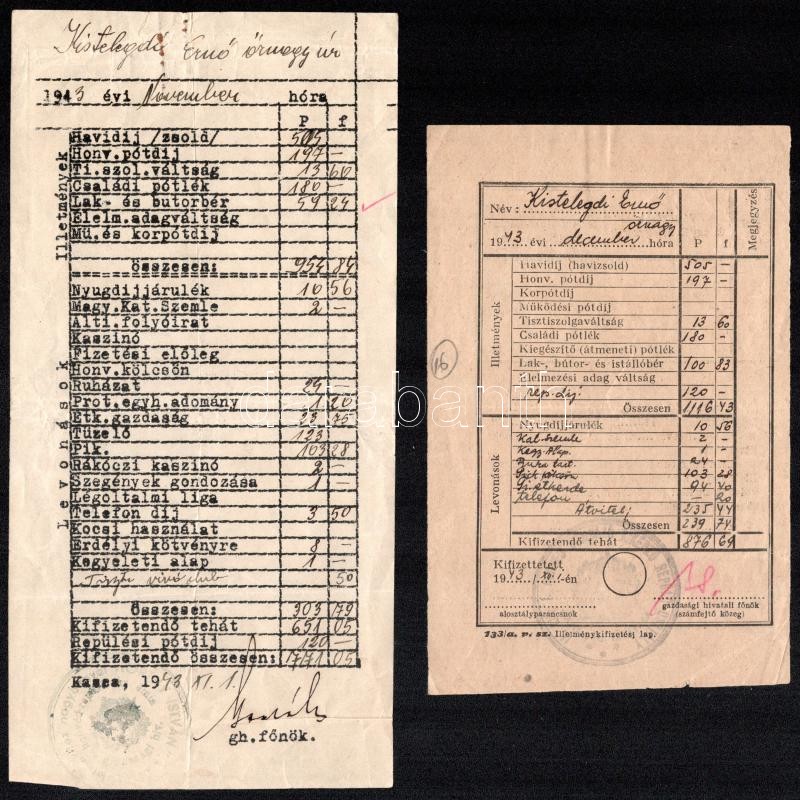 Kistelegdi Ernő őrnagy úr
1943 évi November hóra
P f
Illetmények
Havidij /zsold/ 505
Honv.pótdij 197 —
Ti.szol.váltság 13 60
Családi pótlék 180 —
Lak- és butorbér 59 24
Elelm.adagváltság
Mü.és korpótdij
összesen: 954 84
Levonások
Nyugdijjárulék 10 56
Magy.Kat.Szemle 2 —
Alti.folyóirat
Kaszinó
Fizetési előleg
Honv.kölcsön
Ruházat 24
Prot.egyh.adomány 1 20
Etk.gazdaság 23 75
Tüzelő 123
Plk. 103 28
Rákóczi kaszinó 2 —
Szegények gondozása 1 —
Légoltalmi liga
Telefon dij 3 50
Kocsi használat
Erdélyi kötvényre 8 —
Kegyeleti alap 1 —
Tiszti vivó club 50
összesen: 303 79
Kifizetendő tehát 651 05
Repülési pótdij 120
Kifizetendő összesen: 771 05
Kassa, 1943 XI. 1.
gh.főnök.
ISTVÁN
Név: Kistelegdi Ernő
őrnagy
1943 évi december hóra P f Megjegyzés
Illetmények
Havidíj (havizsold) 505 —
Honv. pótdíj 197 —
Korpótdíj
Működési pótdíj
Tisztiszolgaváltság 13 60
Családi pótlék 180 —
Kiegészítő (átmeneti) pótlék
Lak-, bútor- és istállóbér 100 83
Élelmezési adag váltság
rep. díj. 120 —
Összesen 1116 43
Levonások
Nyugdíjjárulék 10 56
Kat. szemle 2 —
Kegy. Alap. 1 —
Ruha tart. 24 —
103 28
94 40
telefon — 20
Átvitel 235 44
Összesen 239 74
Kifizetendő tehát 876 69
16
Kifizettetett
1943 /XII. -én
alosztályparancsnok
gazdasági hivatali főnök
(számfejtő közeg)
133/a. v. sz. Illetménykifizetési lap.
darabanth